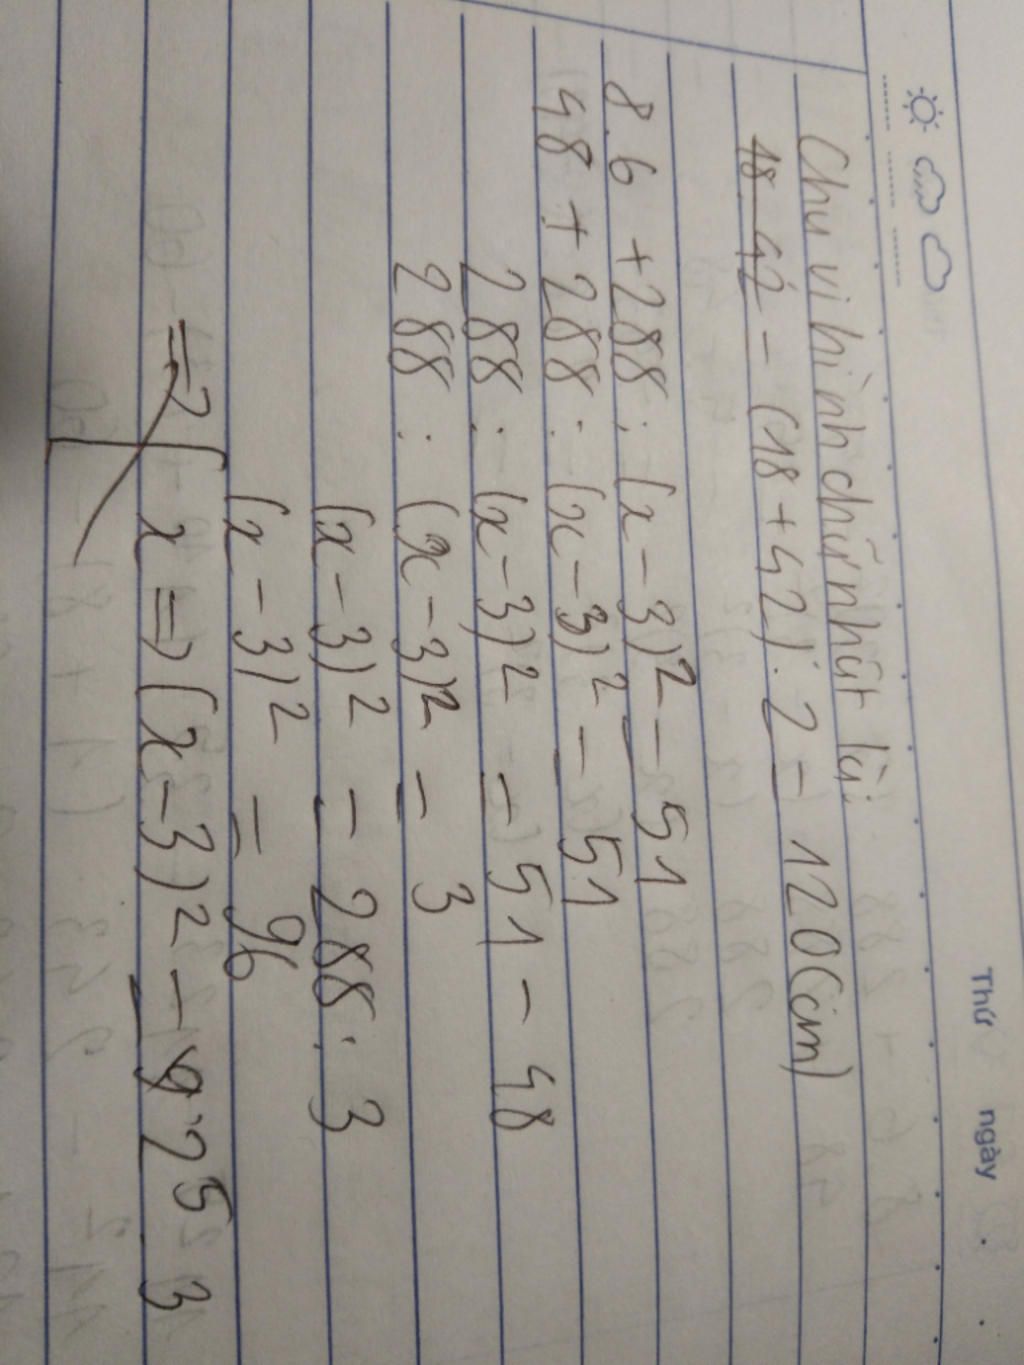 Thứ ngày
Chu vi hình chữ nhật là:
18 42 = (18 + 42). 2 = 120(cm)
8.6 + 288 : (x - 3)² = 51
48 + 288 : (x - 3)² = 51
288 : (x - 3)² = 51 - 48
288 : (x - 3)² = 3
(x - 3)² = 288 : 3
(x - 3)² = 96
x => (x - 3)² =